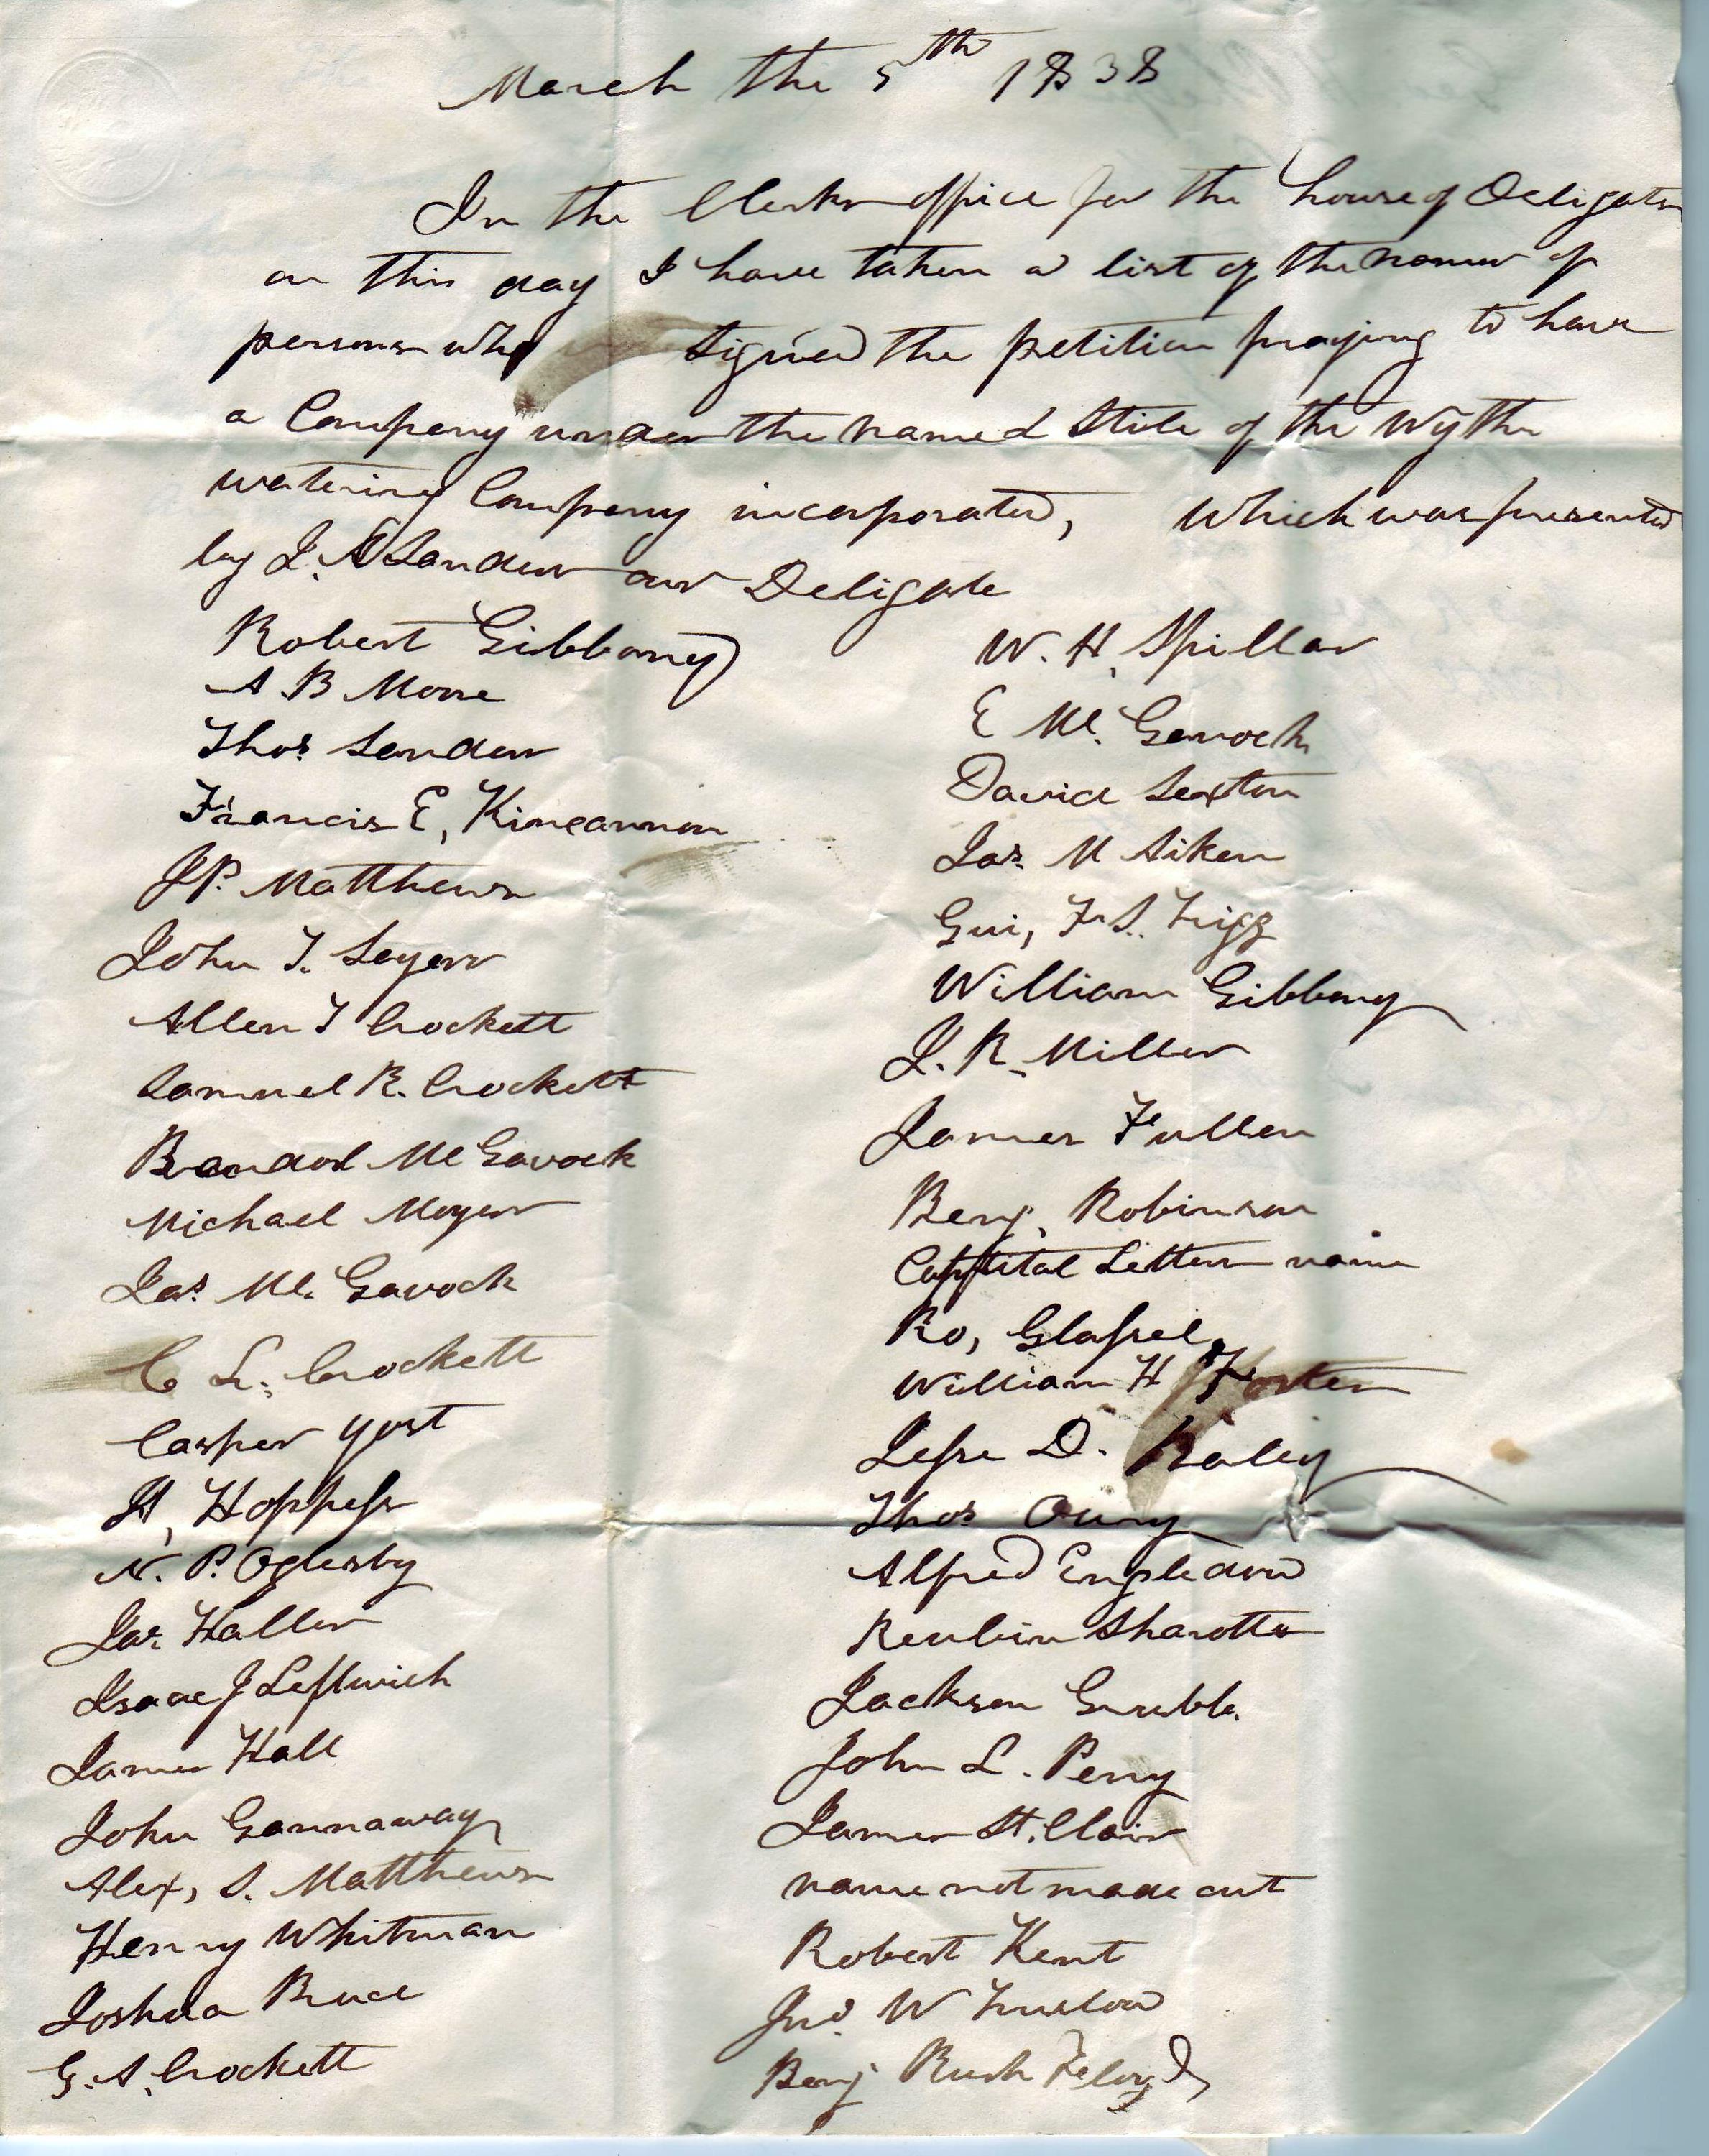 March the 5th 1838
In the Clerks office for the house of Deligates
on this day I have taken a list of the names of
persons who signed the petition praying to have
a Company under the name & Stile of the Wythe
watering Company incorporated, which was presented
by J. Sanders our Deligate
Robert Gibboney
A B Moore
Thos Sanders
Francis E, Kincannon
J P. Matthews
John T. Sayers
Allen T Crockett
Samuel R. Crockett
McGavock
Michael Moyers
Jas Mc. Gavock
C L. Crockett
Casper Yost
H, Hoppess
N. P. Oglesby
Jas. Haller
Isaac J Leftwich
James Hall
John Gannaway
Alex, S. Matthews
Henry Whitman
Joshua Bruce
G. S. Crockett
W. H. Spiller
E Mc. Gavock
David Sexton
Jas. M Aiken
Gui, F S. Trigg
William Gibboney
J. R. Miller
James Fullen
Benj. Robinson
Cappital Letters name
Ro, Glassel
William H Foster
Jesse D. Raley
Thos Oury
Alfred Engledove
Reubin Sharotts
Jackson Grubb.
John L. Perry
James St. Clair
name not made out
Robert Kent
Jno. W
Benj Rush Feloyd